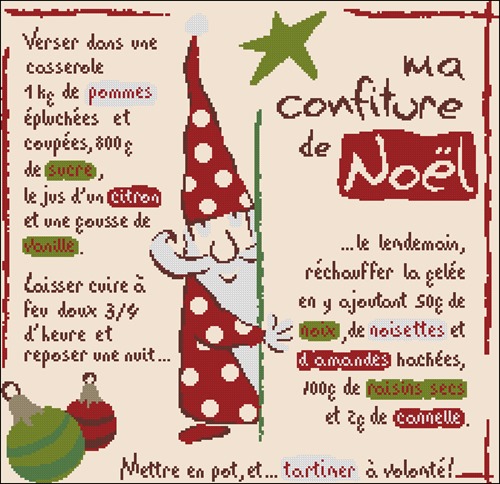 ma
confiture
de Noël
Verser dans une
casserole
1 kg de pommes
épluchées et
coupées, 800g
de sucre,
le jus d'un citron
et une gousse de
vanille.
Laisser cuire à
feu doux 3/4
d'heure et
reposer une nuit...
...le lendemain,
réchauffer la gelée
en y ajoutant 50g de
noix, de noisettes et
d'amandes hachées,
100g de raisins secs
et 2g de cannelle.
Mettre en pot, et... tartiner à volonté!